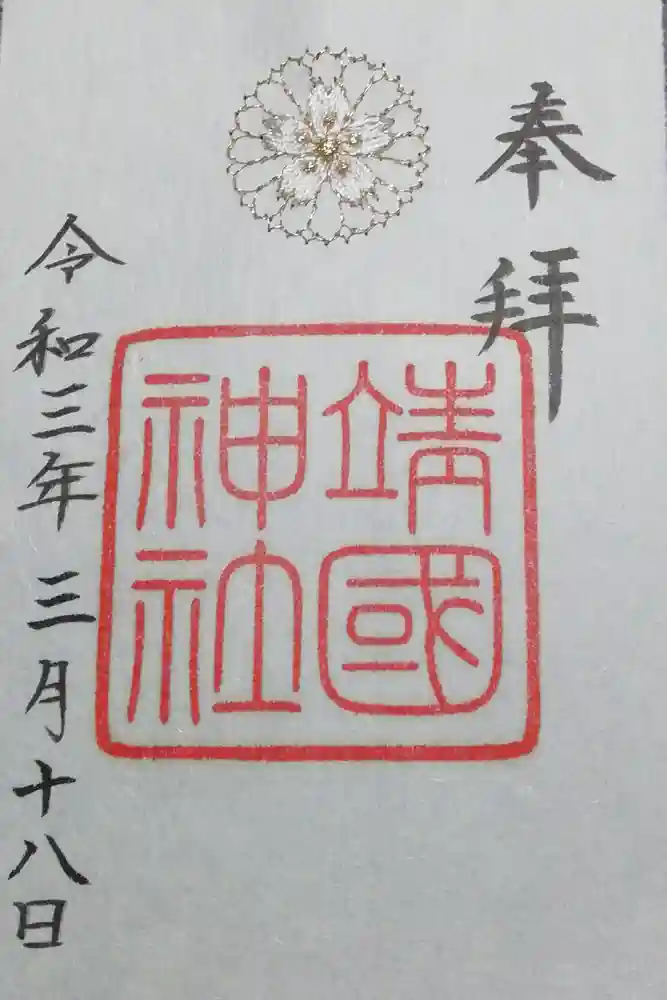 奉拝
靖國
神社
令和三年三月十八日